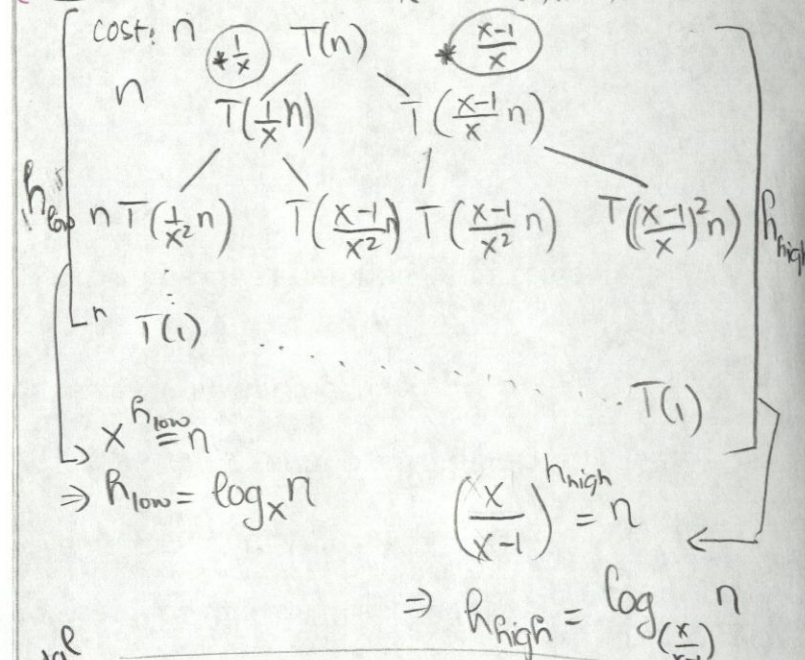 cost: n *1/x T(n) * (x-1)/x
n T(1/x n) T((x-1)/x n)
h_low n T(1/x² n) T((x-1)/x² n) T((x-1)/x² n) T(((x-1)/x)² n) h_high
n T(1)
T(1)
x^h_low = n
⇒ h_low = log_x n
(x/(x-1))^h_high = n
⇒ h_high = log_(x/(x-1)) n